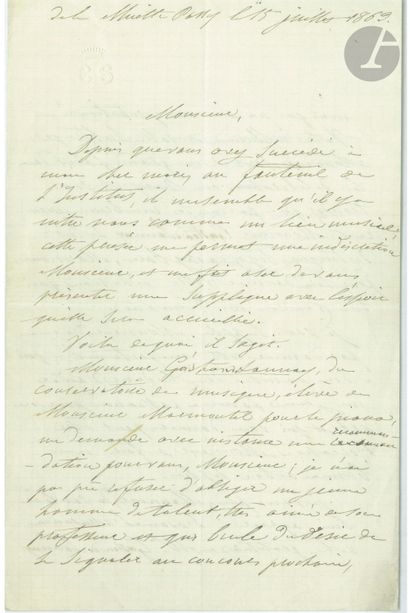 de la Muette Passy le 15 juillet 1869.
Monsieur,
Depuis que vous avez succédé à
mon cher mari, au fauteuil de
l'Institut, il me semble qu'il y a
entre nous comme un lien musical;
cette pensée me permet une indiscrétion
Monsieur, et me fait oser de vous
présenter une supplique avec l'espoir
qu'elle sera accueillie.
Voilà de quoi il s'agit.
Monsieur Launay, du
conservatoire de musique, élève de
Monsieur Marmontel pour le piano,
me demande avec instance une recomman-
-dation pour vous, Monsieur; je n'ai
pas pu refuser d'obliger un jeune
homme de talent, très aimé de son
professeur et qui brûle du désir de
se signaler au concours prochain,